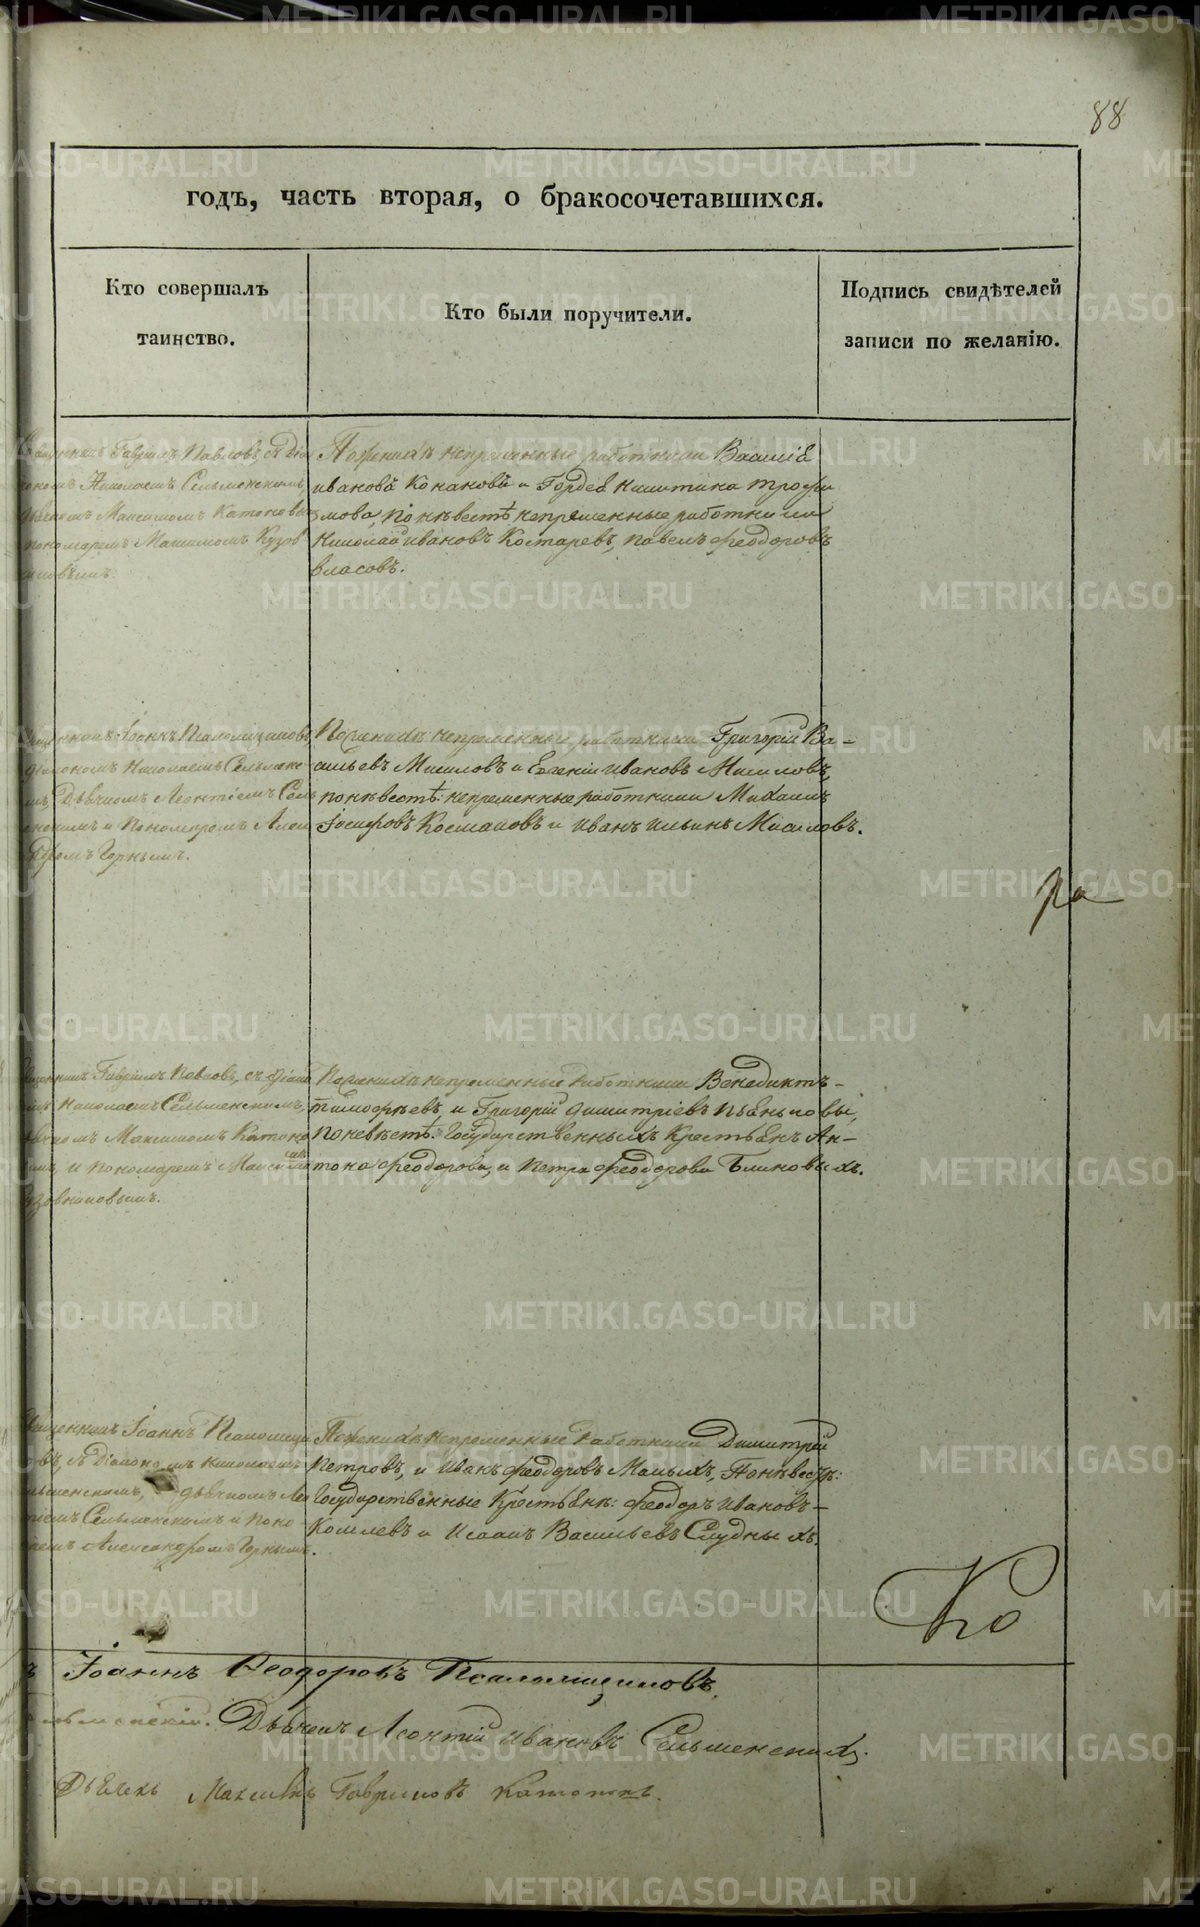 88
годъ, часть вторая, о бракосочетавшихся.
Кто совершалъ
таинство.
Кто были поручители.
Подпись свидѣтелей
записи по желанію.
Гавріилъ Павловъ, съ Діа
Николаемъ Сельменскимъ,
Максимомъ Катоковы
пономаремъ Максимомъ
По женихѣ непремѣнные работники Василій
Ивановъ Конановъ и Гордей Никитинъ Трофи
мовъ, по невѣстѣ непремѣнные работники
Николай Ивановъ Костаревъ, Павелъ Феодоровъ
Власовъ.
Іоаннъ Псаломщиковъ,
діакономъ Николаемъ Сельменс
Дьячкомъ Леонтіемъ Сель
и Пономаремъ Алек
Горнымъ.
По женихѣ непремѣнные работники Григорій Ва-
сильевъ Мисиловъ и Евгеній Ивановъ Мисиловъ,
по невѣстѣ: непремѣнные работники Михаилъ
Іосифовъ и Иванъ Ильинъ Мисиловъ.
ра
Гавріилъ Павловъ, съ Діако
Николаемъ Сельменскимъ,
Максимомъ Катоко
и пономаремъ Максимо
По женихѣ непремѣнные работники Венедиктъ-
Тимофѣевъ, и Григорій Димитріевъ Пьянковы,
по невѣстѣ: Государственныхъ Крестьянъ Ан-
тона Феодорова, и Петра Феодорова Блиновыхъ.
Іоаннъ Псаломщи
овъ, съ Діакономъ Николаемъ
льменскимъ, дьячкомъ Лео
тіемъ Сельменскимъ и Поно
Александромъ Горнымъ.
По женихѣ непремѣнные работники Димитрій
Петровъ, и Иванъ Феодоровъ Малыхъ, По невѣстѣ:
Государственные Крестьяне: Феодоръ Ивановъ-
Комлевъ и Исаакъ Васильевъ Слудныхъ.
Ко
Іоаннъ Феодоровъ Псаломщиковъ.
Дьячекъ Леонтій Ивановъ Сельменскихъ.
Дьячекъ Максимъ Гавриловъ Катоковъ.
METRIKI.GASO-URAL.RU